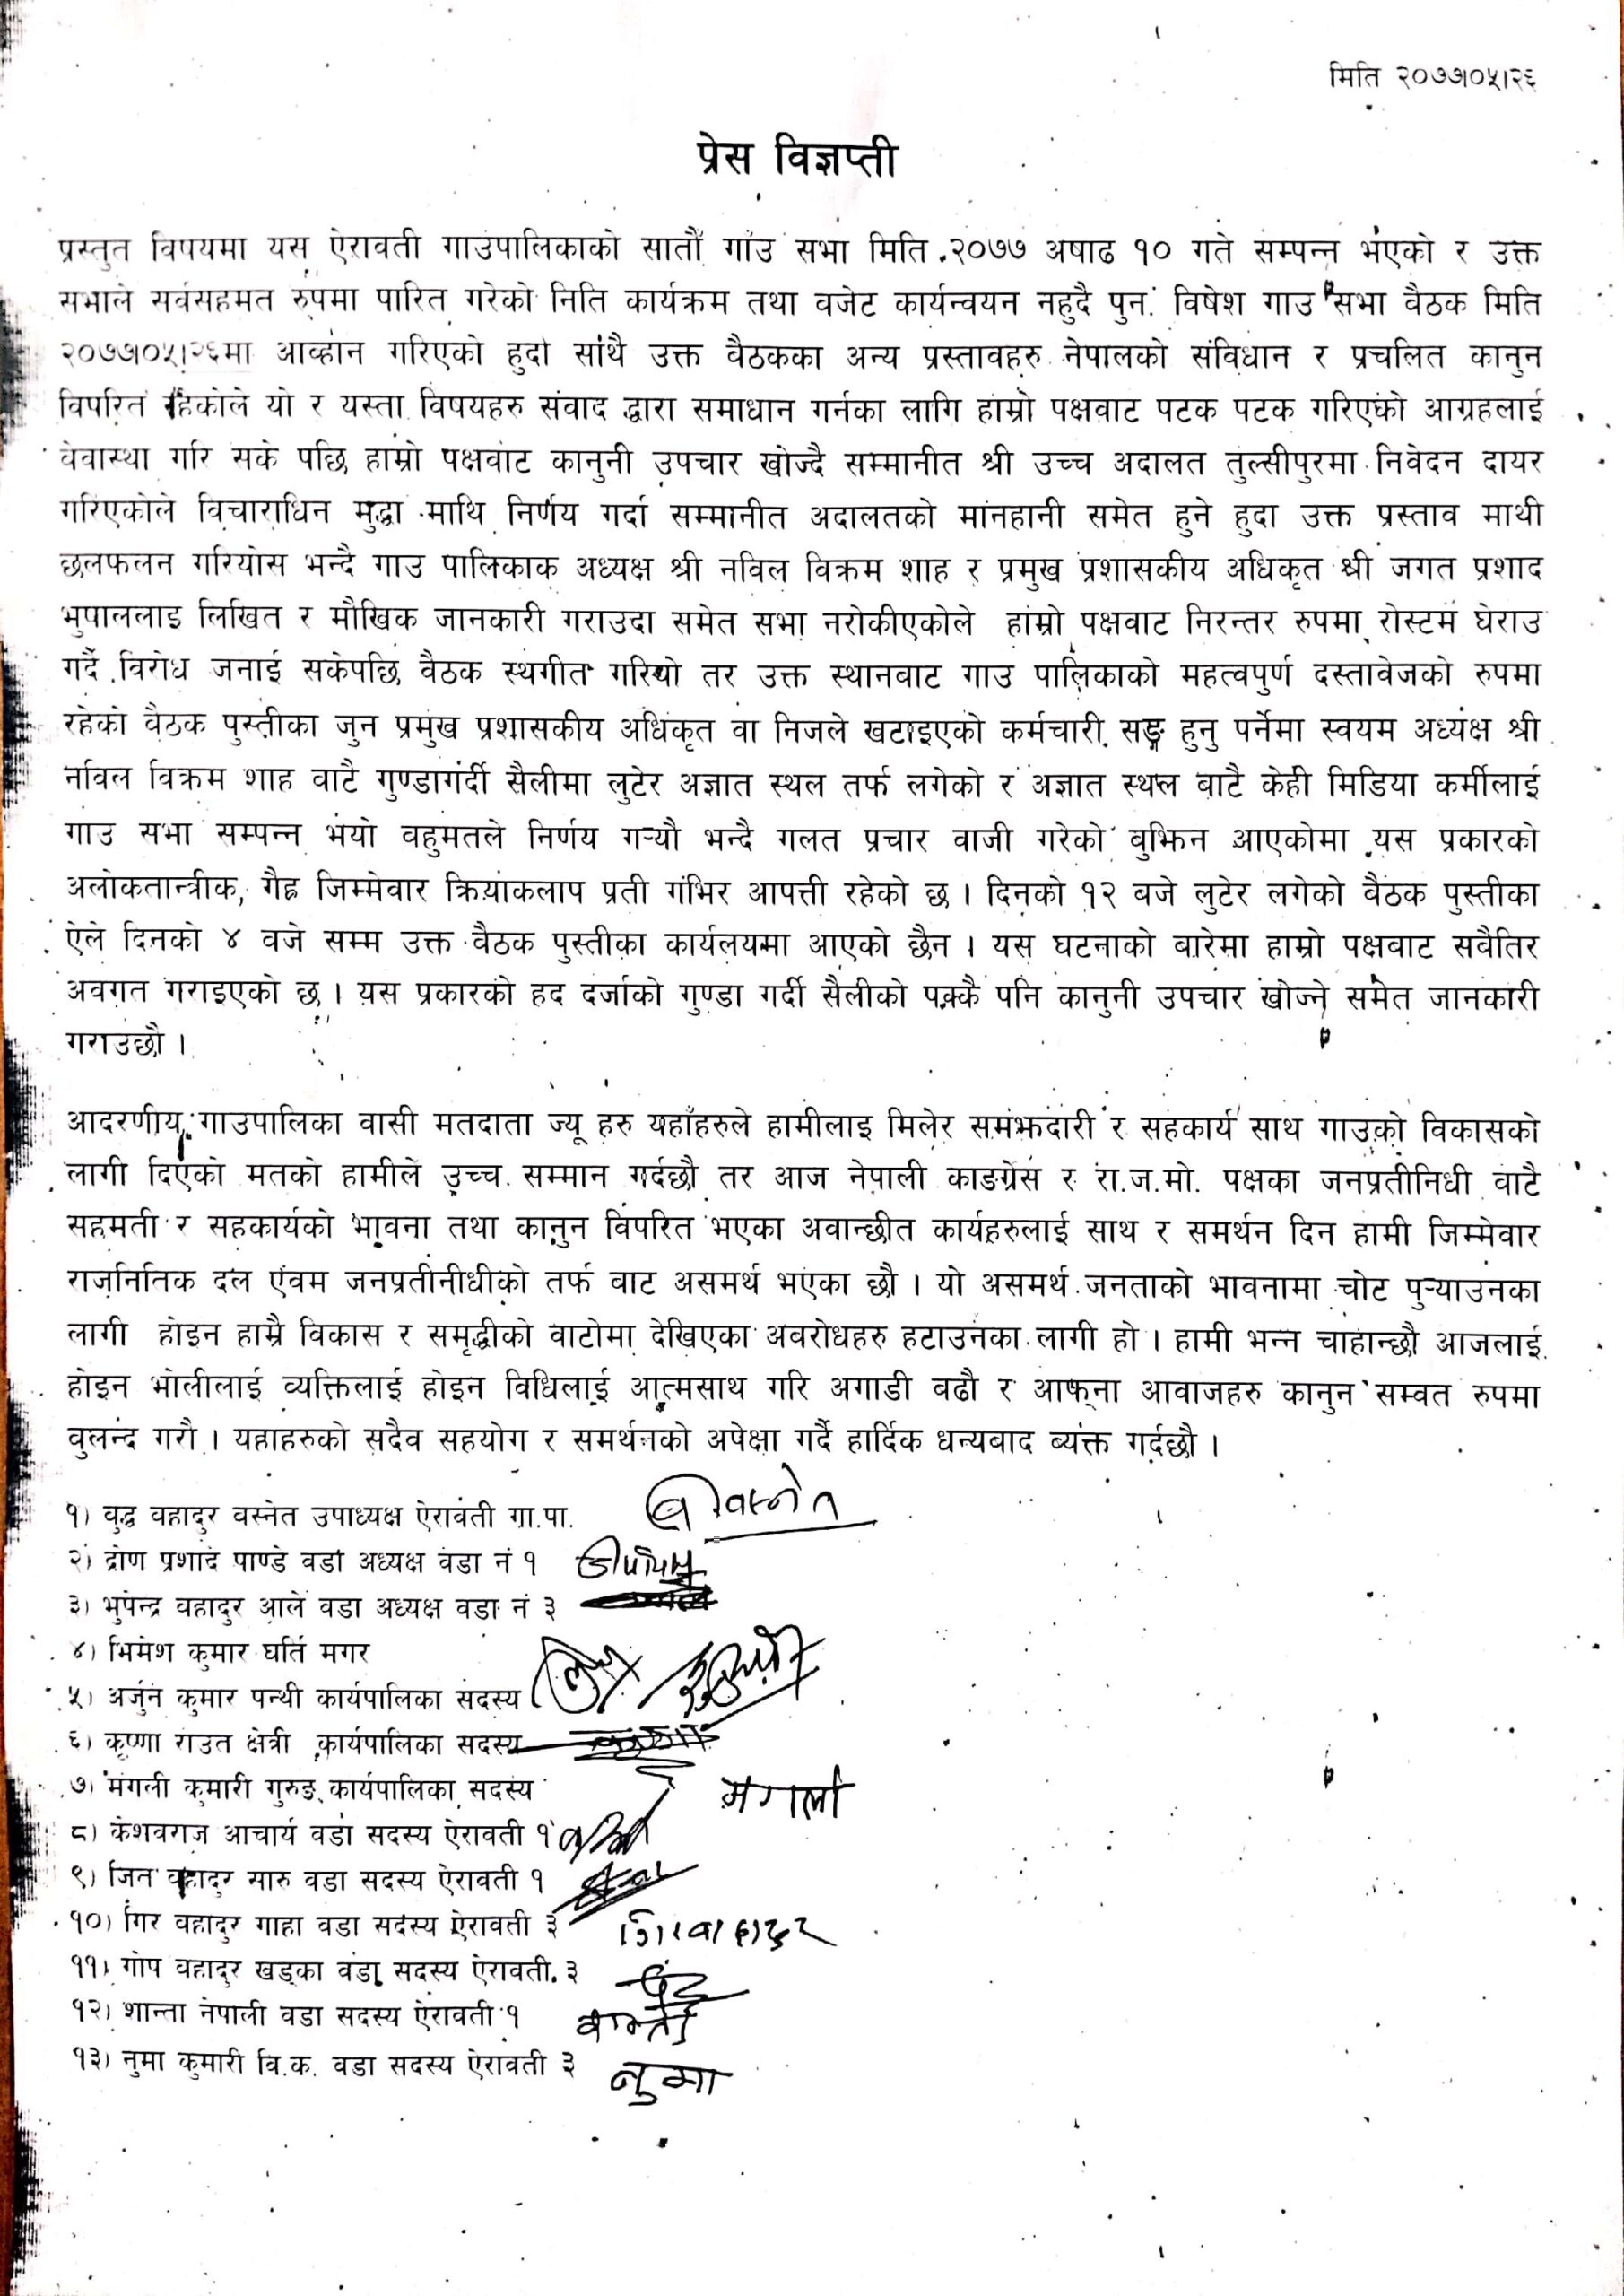 मिति २०७७।०५।२६
प्रेस विज्ञप्ती
प्रस्तुत विषयमा यस ऐरावती गाउपालिकाको सातौँ गाँउ सभा मिति २०७७ अषाढ १० गते सम्पन्न भएको र उक्त
सभाले सर्वसहमत रुपमा पारित गरेको निति कार्यक्रम तथा वजेट कार्यन्वयन नहुदै पुन: विषेश गाउ सभा वैठक मिति
२०७७।०५।२६मा आव्हान गरिएको हुदा साथै उक्त वैठकका अन्य प्रस्तावहरु नेपालको संविधान र प्रचलित कानुन
विपरित रहेकोले यो र यस्ता विषयहरु संवाद द्धारा समाधान गर्नका लागि हाम्रो पक्षवाट पटक पटक गरिएको आग्रहलाई
वेवास्था गरि सके पछि हाम्रो पक्षवाट कानुनी उपचार खोज्दै सम्मानीत श्री उच्च अदालत तुल्सीपुरमा निवेदन दायर
गरिएकोले विचाराधिन मुद्धा माथि निर्णय गर्दा सम्मानीत अदालतको मानहानी समेत हुने हुदा उक्त प्रस्ताव माथी
छलफलन गरियोस भन्दै गाउ पालिकाक अध्यक्ष श्री नविल विक्रम शाह र प्रमुख प्रशासकीय अधिकृत श्री जगत प्रशाद
भुषाललाइ लिखित र मौखिक जानकारी गराउदा समेत सभा नरोकीएकोले हाम्रो पक्षवाट निरन्तर रुपमा रोस्टम घेराउ
गर्दै विरोध जनाई सकेपछि वैठक स्थगीत गरियो तर उक्त स्थानवाट गाउ पालिकाको महत्वपुर्ण दस्तावेजको रुपमा
रहेको वैठक पुस्तीका जुन प्रमुख प्रशासकीय अधिकृत वा निजले खटाइएको कर्मचारी सङ्ग हुनु पर्नेमा स्वयम अध्यक्ष श्री
नविल विक्रम शाह वाटै गुण्डागर्दी सैलीमा लुटेर अज्ञात स्थल तर्फ लगेको र अज्ञात स्थल वाटै केही मिडिया कर्मीलाई
गाउ सभा सम्पन्न भयो वहुमतले निर्णय गर्‍यौ भन्दै गलत प्रचार वाजी गरेको वुझिन आएकोमा यस प्रकारको
अलोकतान्त्रीक, गैह्र जिम्मेवार क्रियाकलाप प्रती गंभिर आपत्ती रहेको छ । दिनको १२ बजे लुटेर लगेको वैठक पुस्तीका
ऐले दिनको ४ वजे सम्म उक्त वैठक पुस्तीका कार्यलयमा आएको छैन । यस घटनाको बारेमा हाम्रो पक्षबाट सवैतिर
अवगत गराइएको छ । यस प्रकारको हद दर्जाको गुण्डा गर्दी सैलीको पक्कै पनि कानुनी उपचार खोज्ने समेत जानकारी
गराउछौ ।
आदरणीय गाउपालिका वासी मतदाता ज्यू हरु यहाँहरुले हामीलाइ मिलेर समझदारी र सहकार्य साथ गाउको विकासको
लागी दिएको मतको हामीले उच्च सम्मान गर्दछौ तर आज नेपाली काङग्रेस र रा.ज.मो. पक्षका जनप्रतीनिधी वाटै
सहमती र सहकार्यको भावना तथा कानुन विपरित भएका अवान्छीत कार्यहरुलाई साथ र समर्थन दिन हामी जिम्मेवार
राजनितिक दल एंवम जनप्रतीनीधीको तर्फ वाट असमर्थ भएका छौ । यो असमर्थ जनताको भावनामा चोट पुर्‍याउनका
लागी होइन हाम्रै विकास र समृद्धीको वाटोमा देखिएका अवरोधहरु हटाउनका लागी हो । हामी भन्न चाहान्छौ आजलाई
होइन भोलीलाई व्यक्तिलाई होइन विधिलाई आत्मसाथ गरि अगाडी वढौ र आफ्ना आवाजहरु कानुन सम्वत रुपमा
वुलन्द गरौ । यहाहरुको सदैव सहयोग र समर्थनको अपेक्षा गर्दै हार्दिक धन्यबाद ब्यक्त गर्दछौ ।
१) वुद्ध वहादुर वस्नेत उपाध्यक्ष ऐरावती गा.पा. वस्नेत
२) द्रोण प्रशाद पाण्डे वडा अध्यक्ष वडा नं १
३) भुपेन्द्र वहादुर आले वडा अध्यक्ष वडा नं ३
४) भिमेश कुमार घर्ति मगर
५) अर्जुन कुमार पन्थी कार्यपालिका सदस्य
६) कृष्णा राउत क्षेत्री कार्यपालिका सदस्य
७) मंगली कुमारी गुरुङ कार्यपालिका सदस्य मगली
८) केशवराज आचार्य वडा सदस्य ऐरावती १
९) जित वहादुर सारु वडा सदस्य ऐरावती १
१०) गिर वहादुर गाहा वडा सदस्य ऐरावती ३ गिरवाहादुर
११) गोप वहादुर खड्का वडा सदस्य ऐरावती ३
१२) शान्ता नेपाली वडा सदस्य ऐरावती १
१३) नुमा कुमारी वि.क. वडा सदस्य ऐरावती ३ नुमा